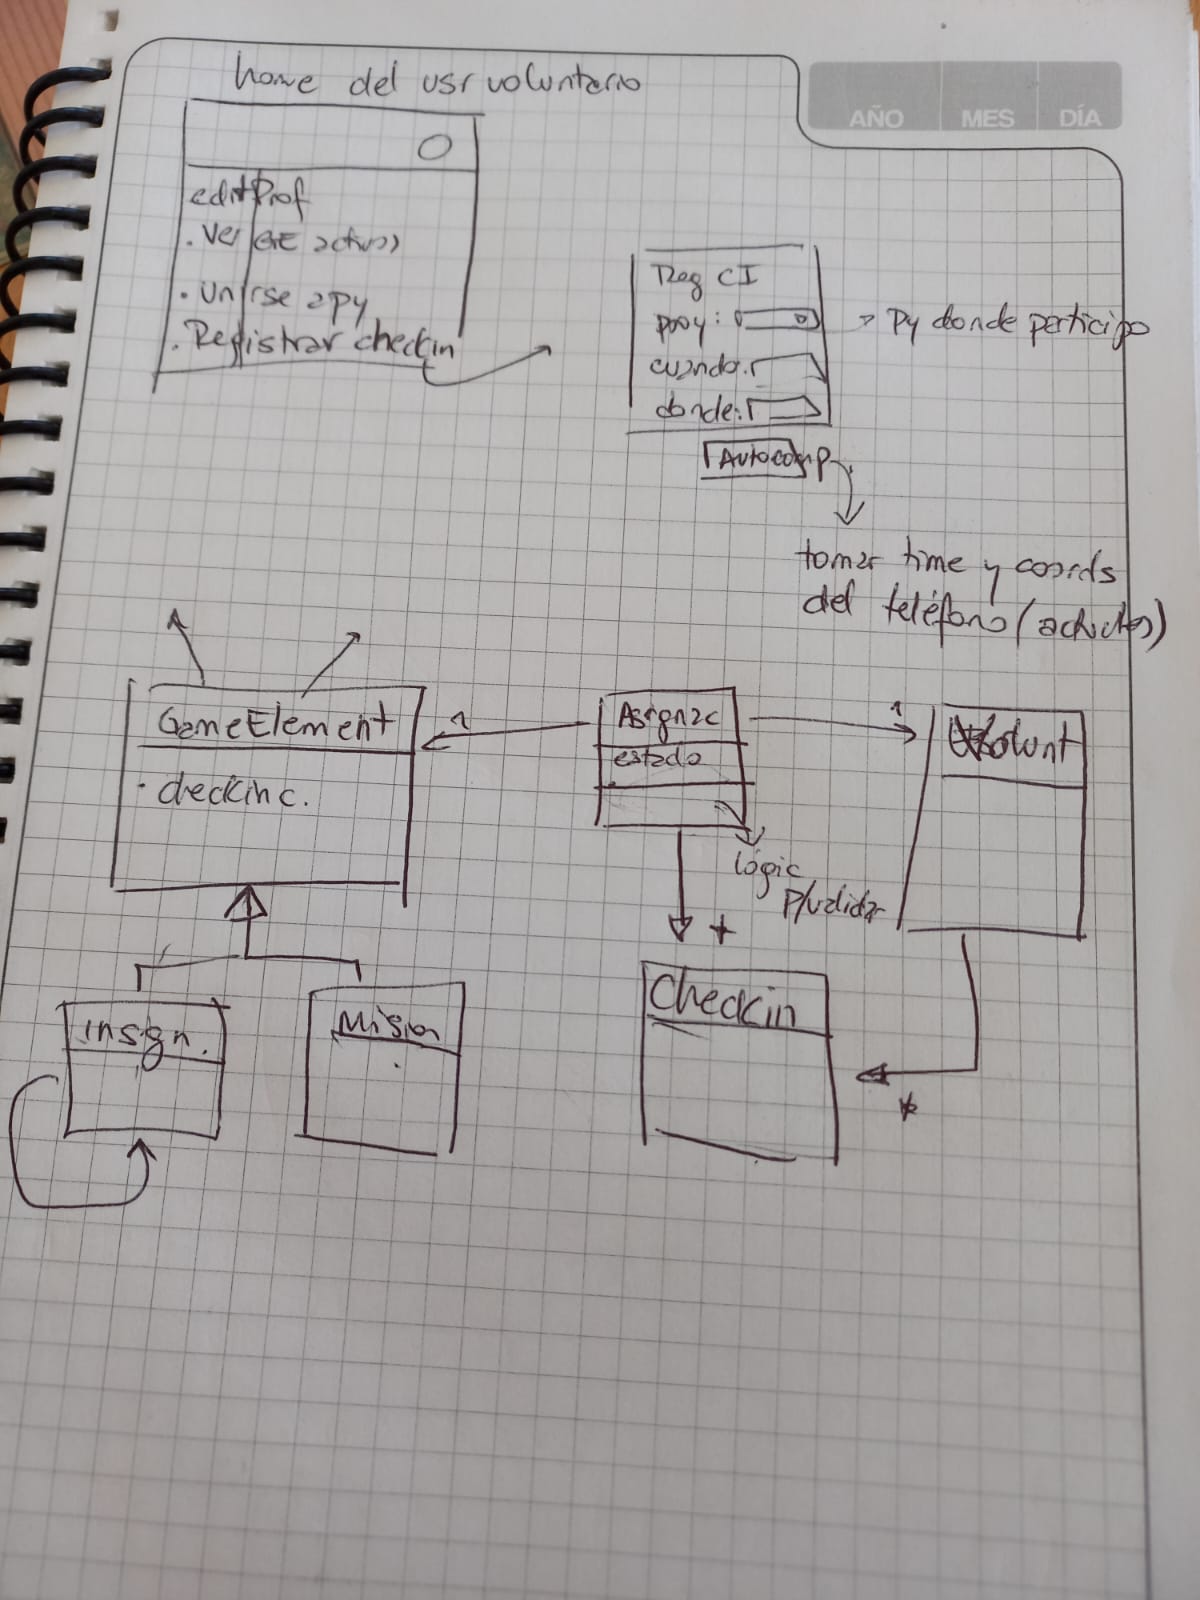 home del usr voluntario
AÑO MES DÍA
editProf
. Ver GE activos
. Unirse a py
. Registrar checkin
Reg CI
proy:
cuando:
donde:
Autocomp
> py donde participo
tomar time y coords
del teléfono (actuales)
GameElement
. checkin c.
1
Asignac
estado
1
Volunt
lógic
p/validar
+
Checkin
*
insign.
Mision